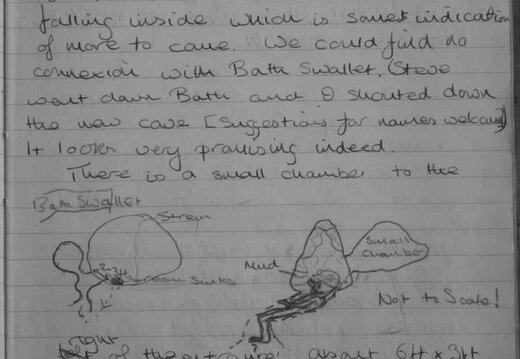 falling inside which is some indication
of more to come. We could find no
connexion with Bath Swallet, (Steve
went down Bath and I shouted down
the new cave [Suggestions for names welcome])
It looks very promising indeed.
There is a small chamber to the
Bath Swallet
Stream
Stream Sinks
Mud
Small
Chamber
Not to Scale!
right
of the entrance about 6ft x 3ft